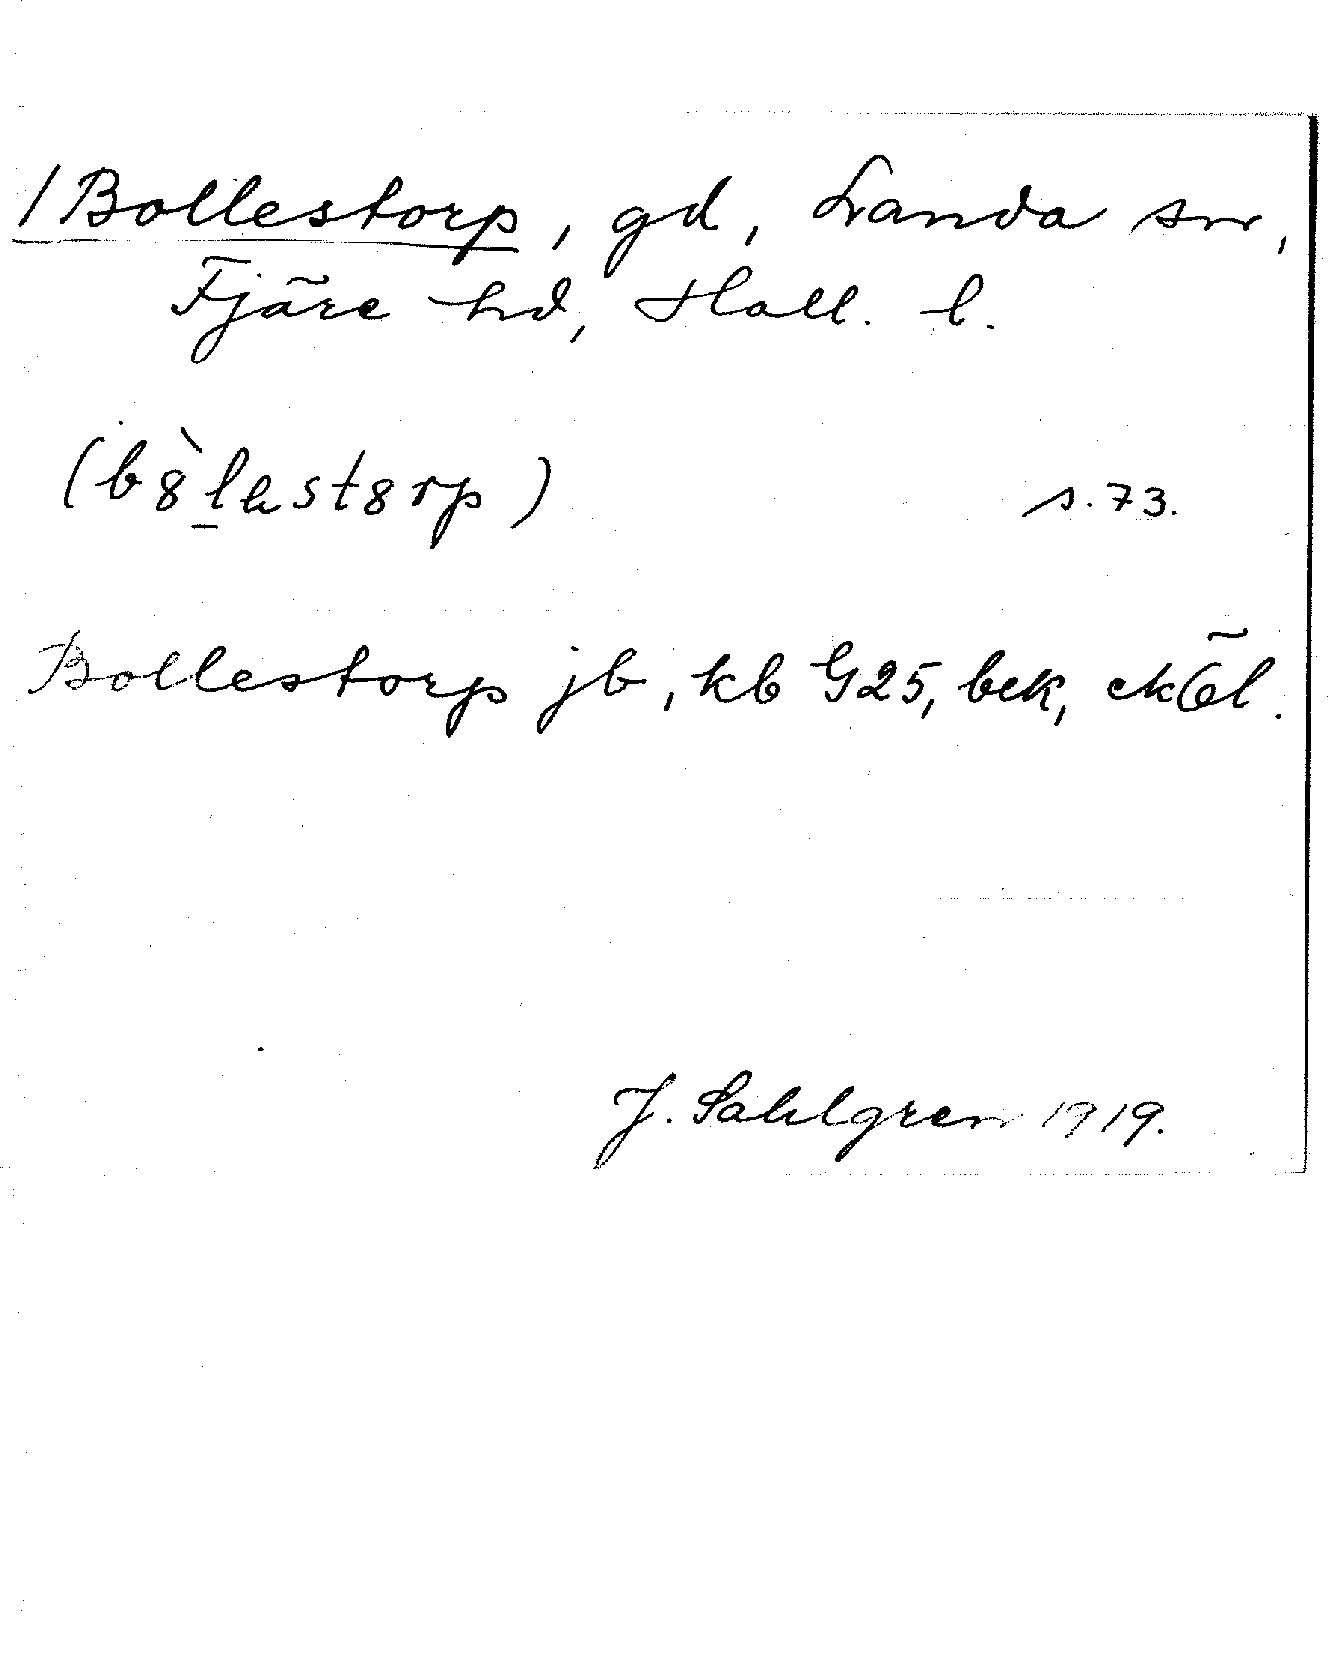 /Bollestorp, gd, Landa sn,
Fjäre hd, Hall. l.
s. 73.
Bollestorp jb, kb G25, bek, ekōl.
J. Sahlgren 1919.